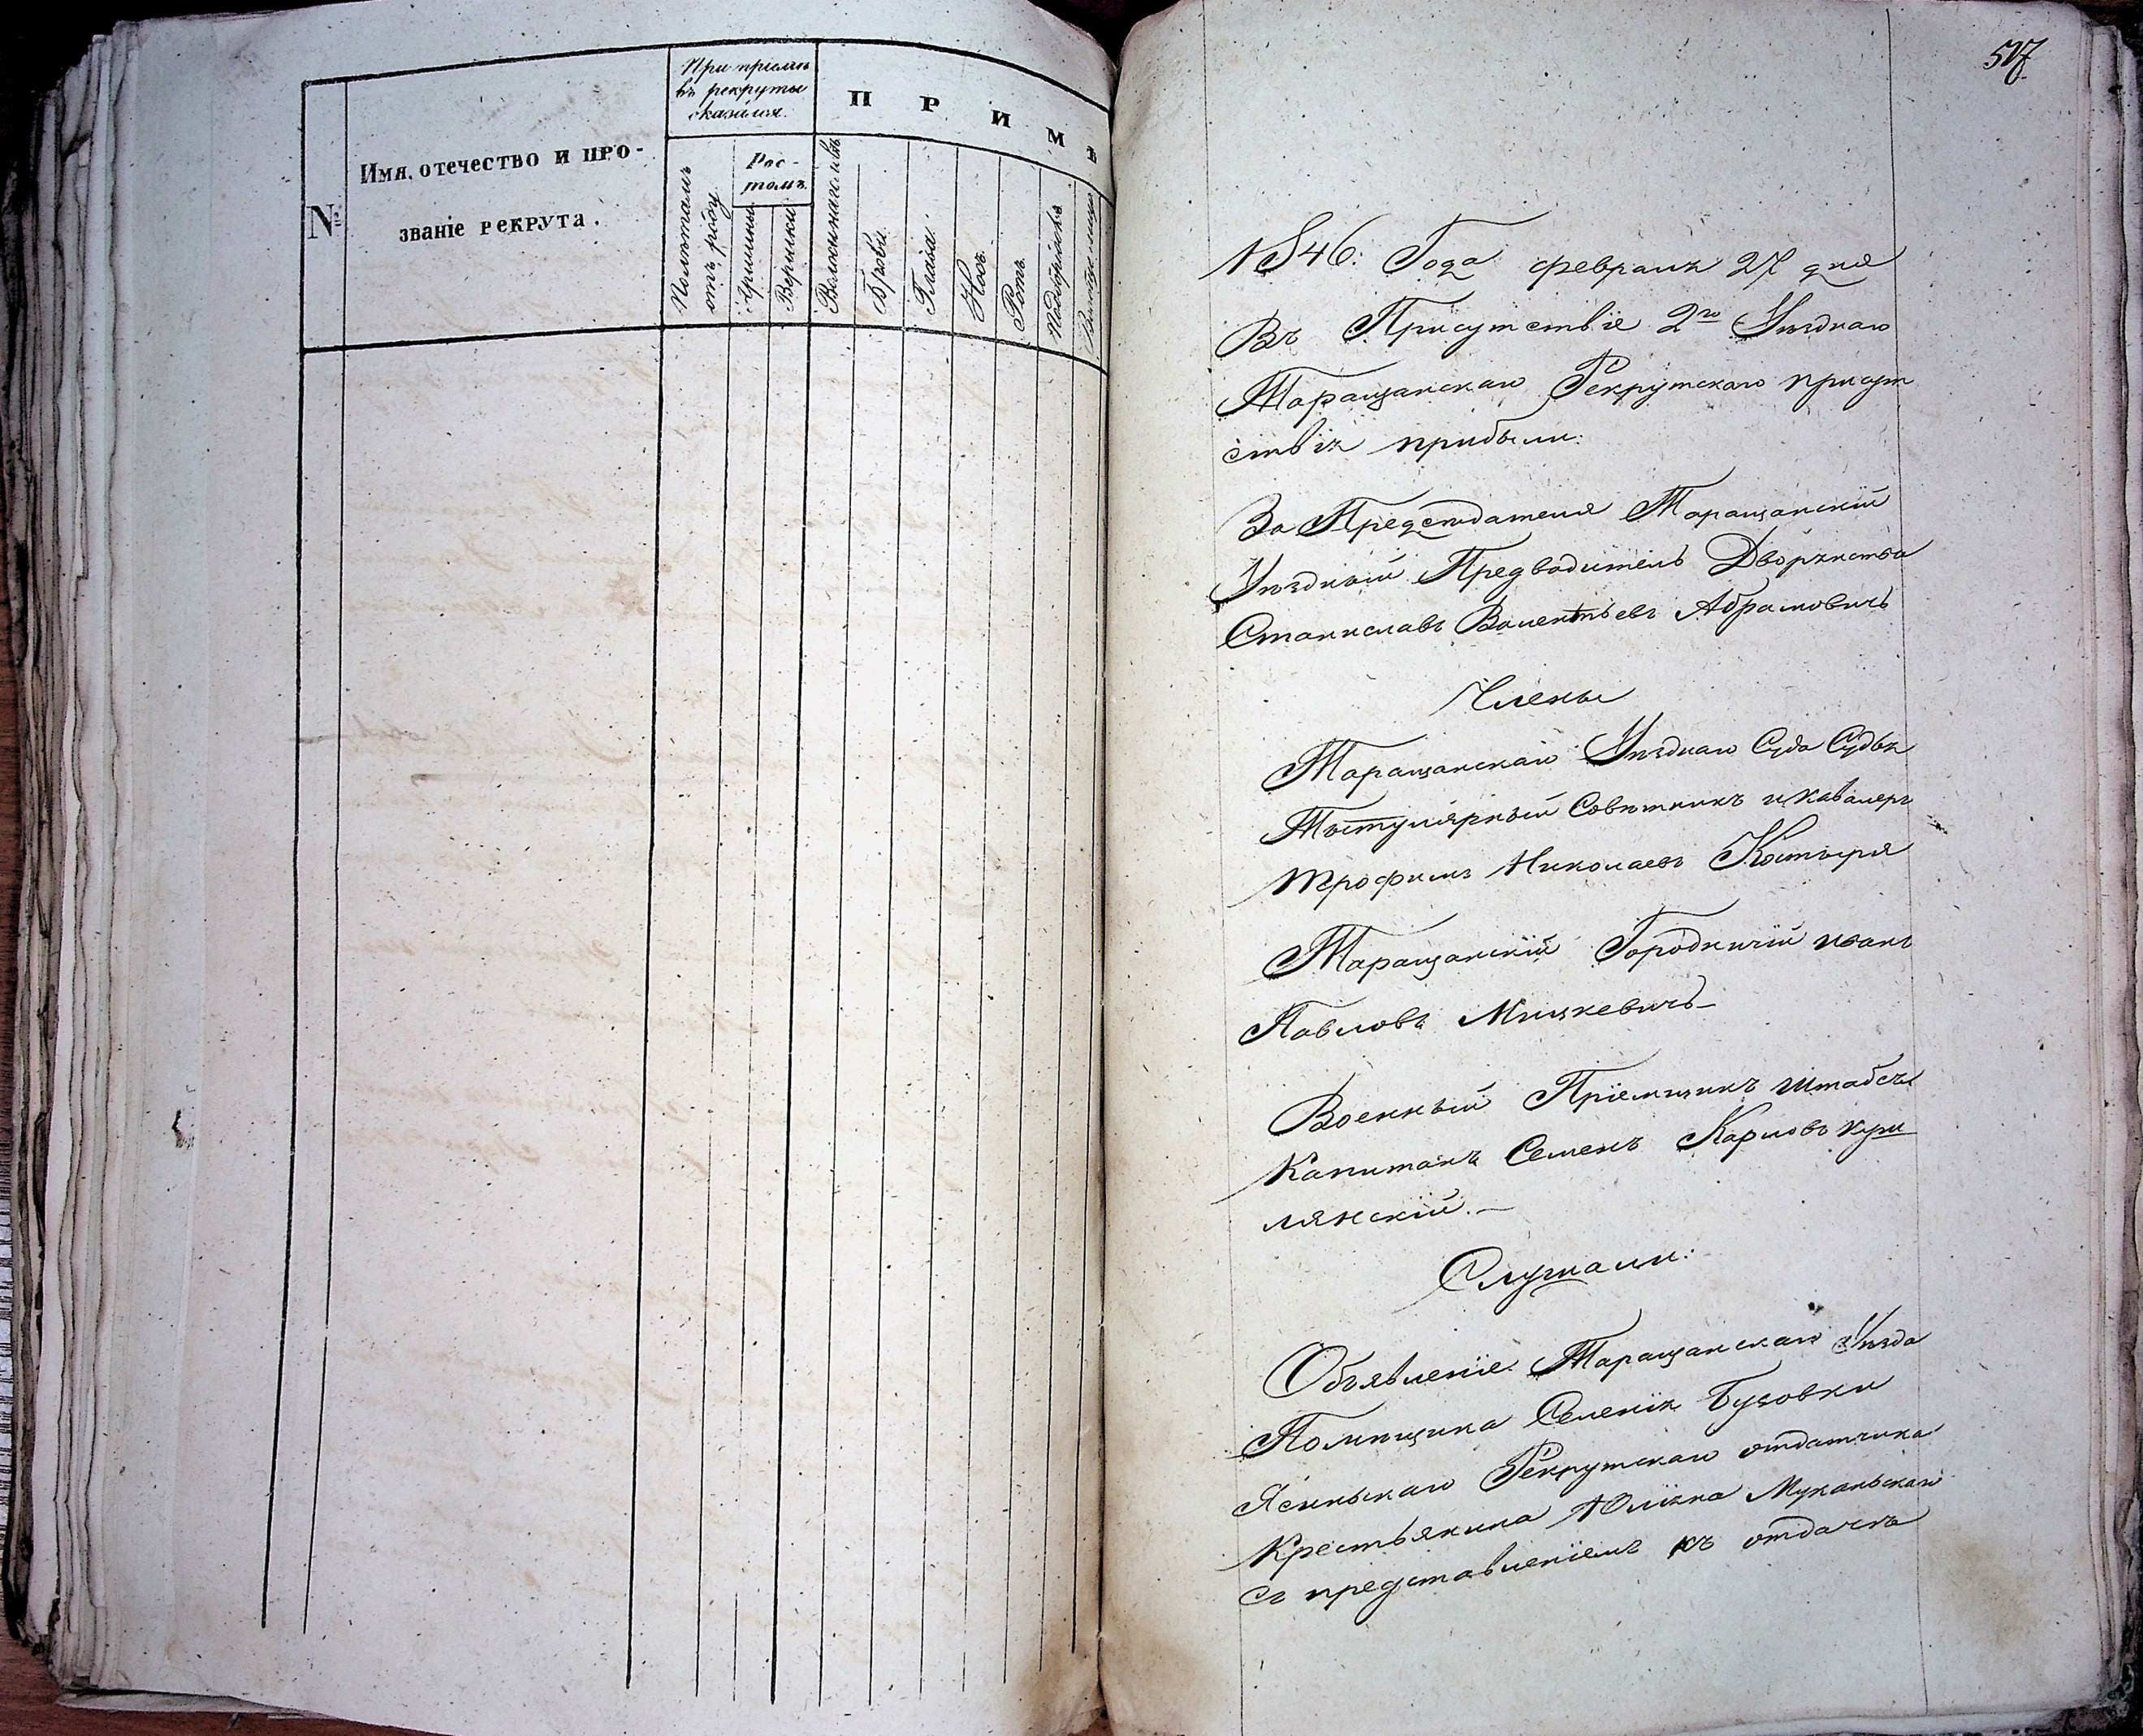 №
Имя, отечество и про-
званіе рекрута.
При пріемѣ
въ рекруты
оказался.
Полѣтамъ
отъ роду
Рос-
томъ.
Аршины
Вершки
П Р И М Ѣ
Волосы на головѣ
Брови
Глаза
Носъ
Ротъ
Подбородокъ
517
1846: Года февраля 27 дня
Въ Присутствіе 2го Уѣзднаго
Таращанскаго Рекрутскаго присут
ствія прибыли:
За Предсѣдателя Таращанскій
Уѣздный Предводитель Дворянства
Станиславъ Валентьевъ Абрамовичь
Члены
Таращанскаго Уѣзднаго Суда Судья
Титулярный Совѣтникъ и Кавалеръ
Трофимъ Николаевъ Костыря
Таращанскій Городничій иванъ
Павловъ Мицкевичь
Военный Пріемщикъ штабсъ
Капитанъ Семенъ Карловъ
лянскій.
Слушали:
Объявленіе Таращанскаго Уѣзда
Помѣщика Селенія Бузовки
Ясинскаго Рекрутскаго отдатчика
Крестьянина Юліяна
съ представленіемъ къ отдачѣ